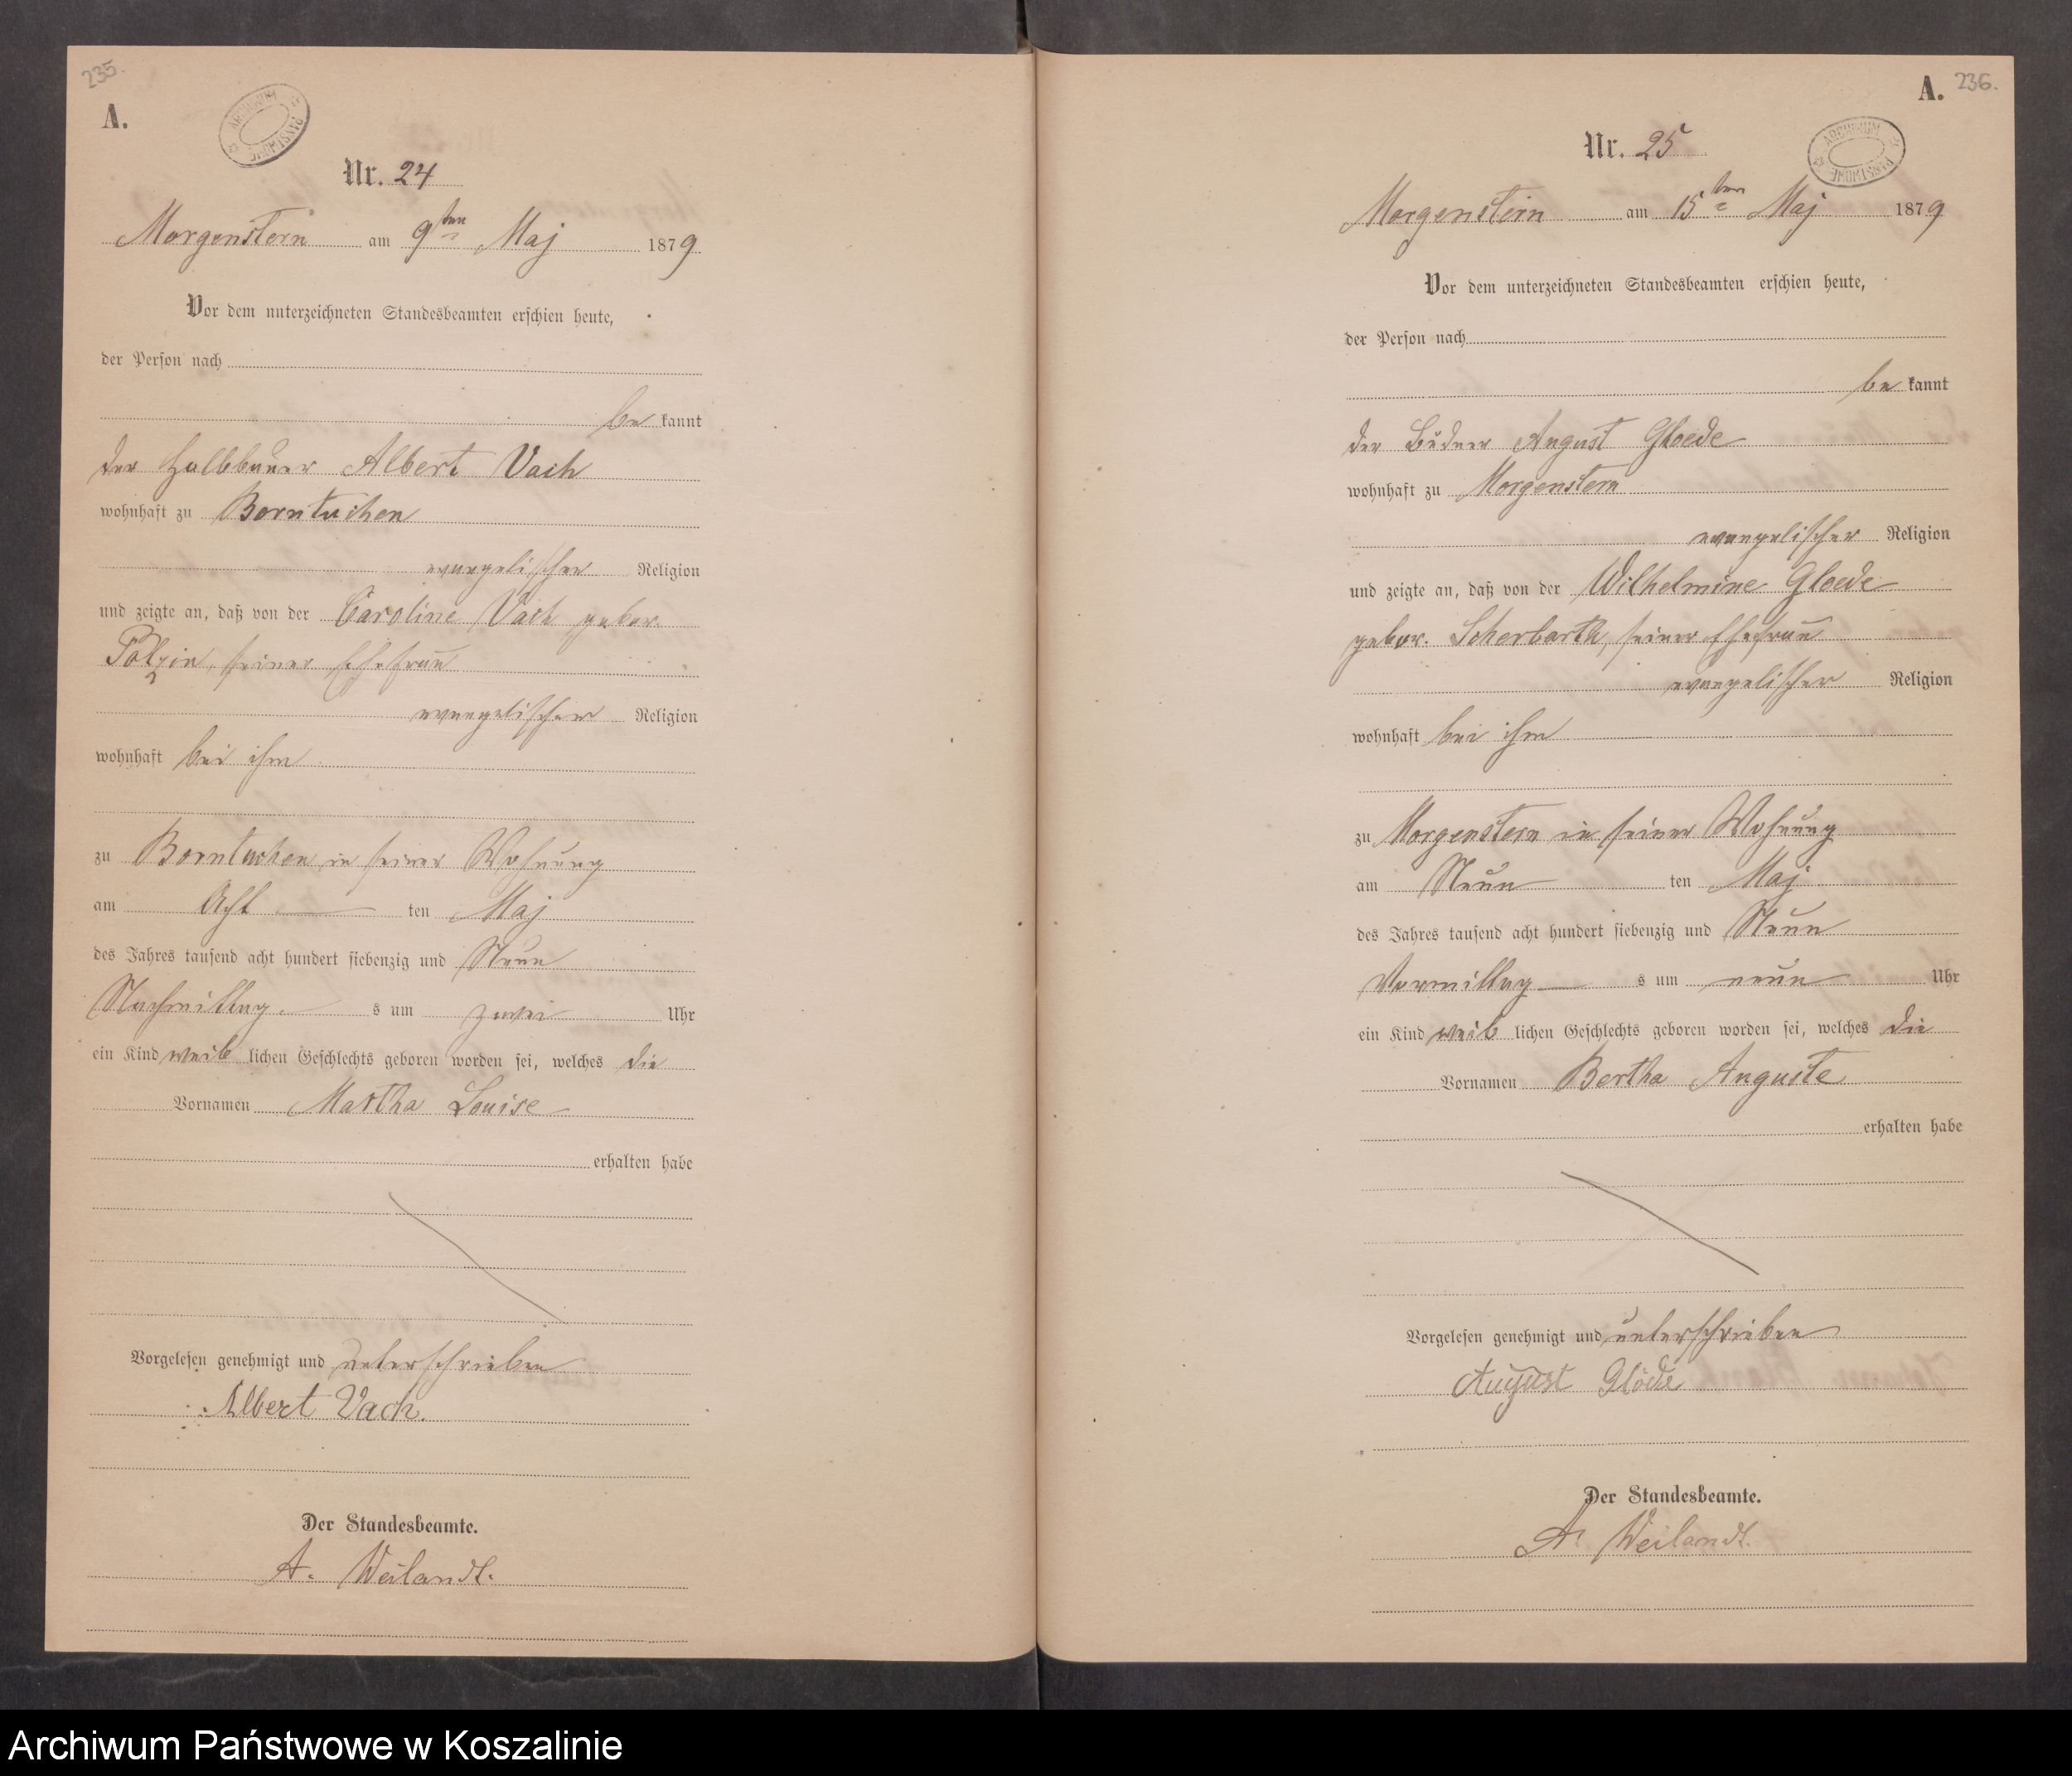 235.
A.
ARCHIWUM PAŃSTWOWE
Nr. 24
Morgenstern am 9ten Maj 1879.
Vor dem unterzeichneten Standesbeamten erschien heute,
der Person nach
be kannt
der Halbbauer Albert Vach
wohnhaft zu Borntuchen
evangelischer Religion
und zeigte an, daß von der Caroline Vach gebor.
Polzin, seiner Ehefrau
evangelischer Religion
wohnhaft bei ihm
zu Borntuchen in seiner Wohnung
am Acht ten Maj
des Jahres tausend acht hundert siebenzig und Neun
Nachmittag s um zwei Uhr
ein Kind weib lichen Geschlechts geboren worden sei, welches die
Vornamen Martha Louise
erhalten habe
Vorgelesen genehmigt und unterschrieben
Albert Vach.
Der Standesbeamte.
A. Weilandt.
A. 236.
ARCHIWUM PAŃSTWOWE
Nr. 25
Morgenstern am 15ten Maj 1879
Vor dem unterzeichneten Standesbeamten erschien heute,
der Person nach
be kannt
der Büdner August Gloede
wohnhaft zu Morgenstern
evangelischer Religion
und zeigte an, daß von der Wilhelmine Gloede
gebor. Scherbarth, seiner Ehefrau
evangelischer Religion
wohnhaft bei ihm
zu Morgenstern in seiner Wohnung
am Neun ten Maj
des Jahres tausend acht hundert siebenzig und Neun
Vormittag s um neun Uhr
ein Kind weib lichen Geschlechts geboren worden sei, welches die
Vornamen Bertha Auguste
erhalten habe
Vorgelesen genehmigt und unterschrieben
August Glöde
Der Standesbeamte.
A. Weilandt.
Archiwum Państwowe w Koszalinie